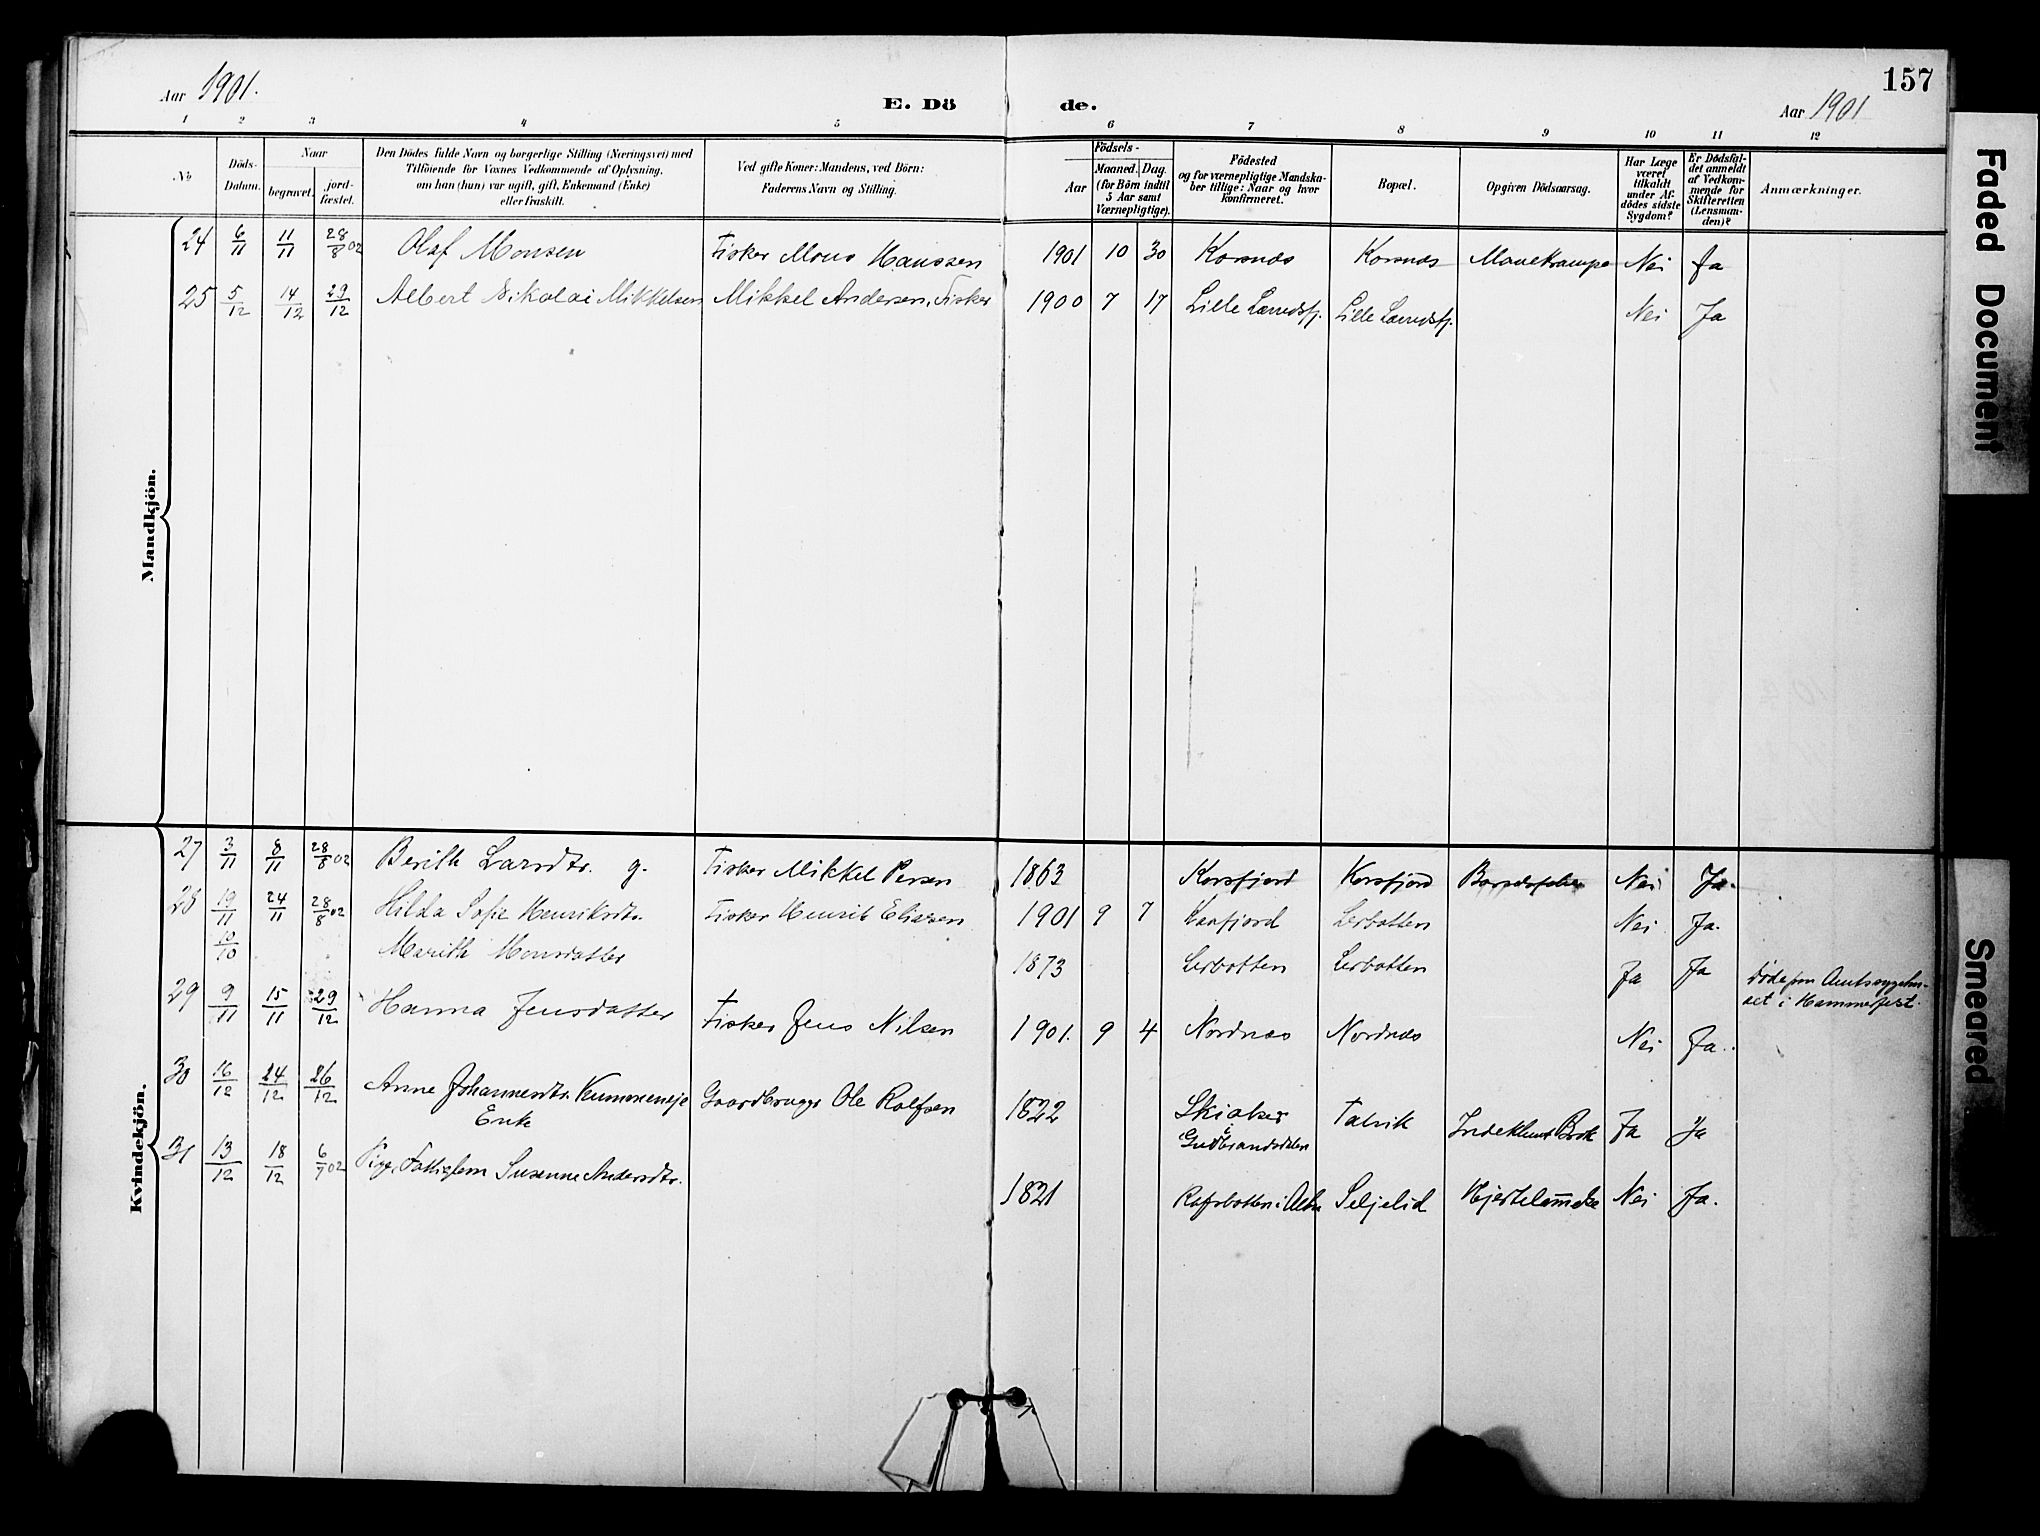 157
Aar 1901.
E. Dö de.
Aar 1901
1 2 3 4 5 6 7 8 9 10 11 12
No
Döds-
Datum.
Naar
begravet.
jord-
fæstet.
Den Dödes fulde Navn og borgerlige Stilling (Næringsvei) med
Tilföiende for Voxnes Vedkommende af Oplysning,
om han (hun) var ugift, gift, Enkemand (Enke)
eller fraskilt.
Ved gifte Koner: Mandens, ved Börn:
Faderens Navn og Stilling.
Födsels-
Aar
Maaned. Dag.
(for Börn indtil
5 Aar samt
Værnepligtige).
Födested
og for værnepligtige Mandska-
ber tillige: Naar og hvor
konfirmeret.
Bopæl.
Opgiven Dödsaarsag.
Har Læge
været
tilkaldt
under Af-
dödes sidste
Sygdom?
Er Dödsfal-
det anmeldt
af Vedkom-
mende for
Skifteretten
(Lensman-
den)?
Anmærkninger.
Mandkjön.
24 6/11 11/11 28/8 02 Olaf Monsen Fisker Mons Hanssen 1901 10 30 Korsnæs Korsnæs Mavekrampe Nei Ja
25 5/12 14/12 29/12 Albert Nikolai Mikkelsen Mikkel Andersen, Fisker 1900 7 17 Lille Lerredsfj. Lille Lerredsfj. Nei Ja
Kvindekjön.
27 3/11 8/11 28/8 02 Berith Larsdtr. g. Fisker Mikkel Persen 1863 Korsfjord Korsfjord Nei Ja.
28 19/11 24/11 28/8 02 Hilda Sofie Henriksdtr. Fisker Henrik Eliassen 1901 9 7 Lerbotten Nei Ja.
10/10 Marith Monsdatter 1873 Lerbotten Lerbotten Ja Ja Døde paa Amtssygehu-
set i Hammerfest.
29 9/11 15/11 29/12 Hanna Jensdatter Fisker Jens Nilsen 1901. 9 4 Nordnæs Nordnæs Nei Ja.
30 16/12 24/12 26/12 Anne Johannesdtr. Kummeneje Gaardbruger Ole Rolfsen 1822 Skiaker Talvik Indeklemt Brok Ja Ja
Enke
i
Gudbrandsdalen
31 13/12 18/12 6/7 02 Pige, Fattiglem Susanne Andersdtr. 1821 Rafsbotten i Alten Seljelid Hjertelammelse Nei Ja.
Faded Document
Smeared